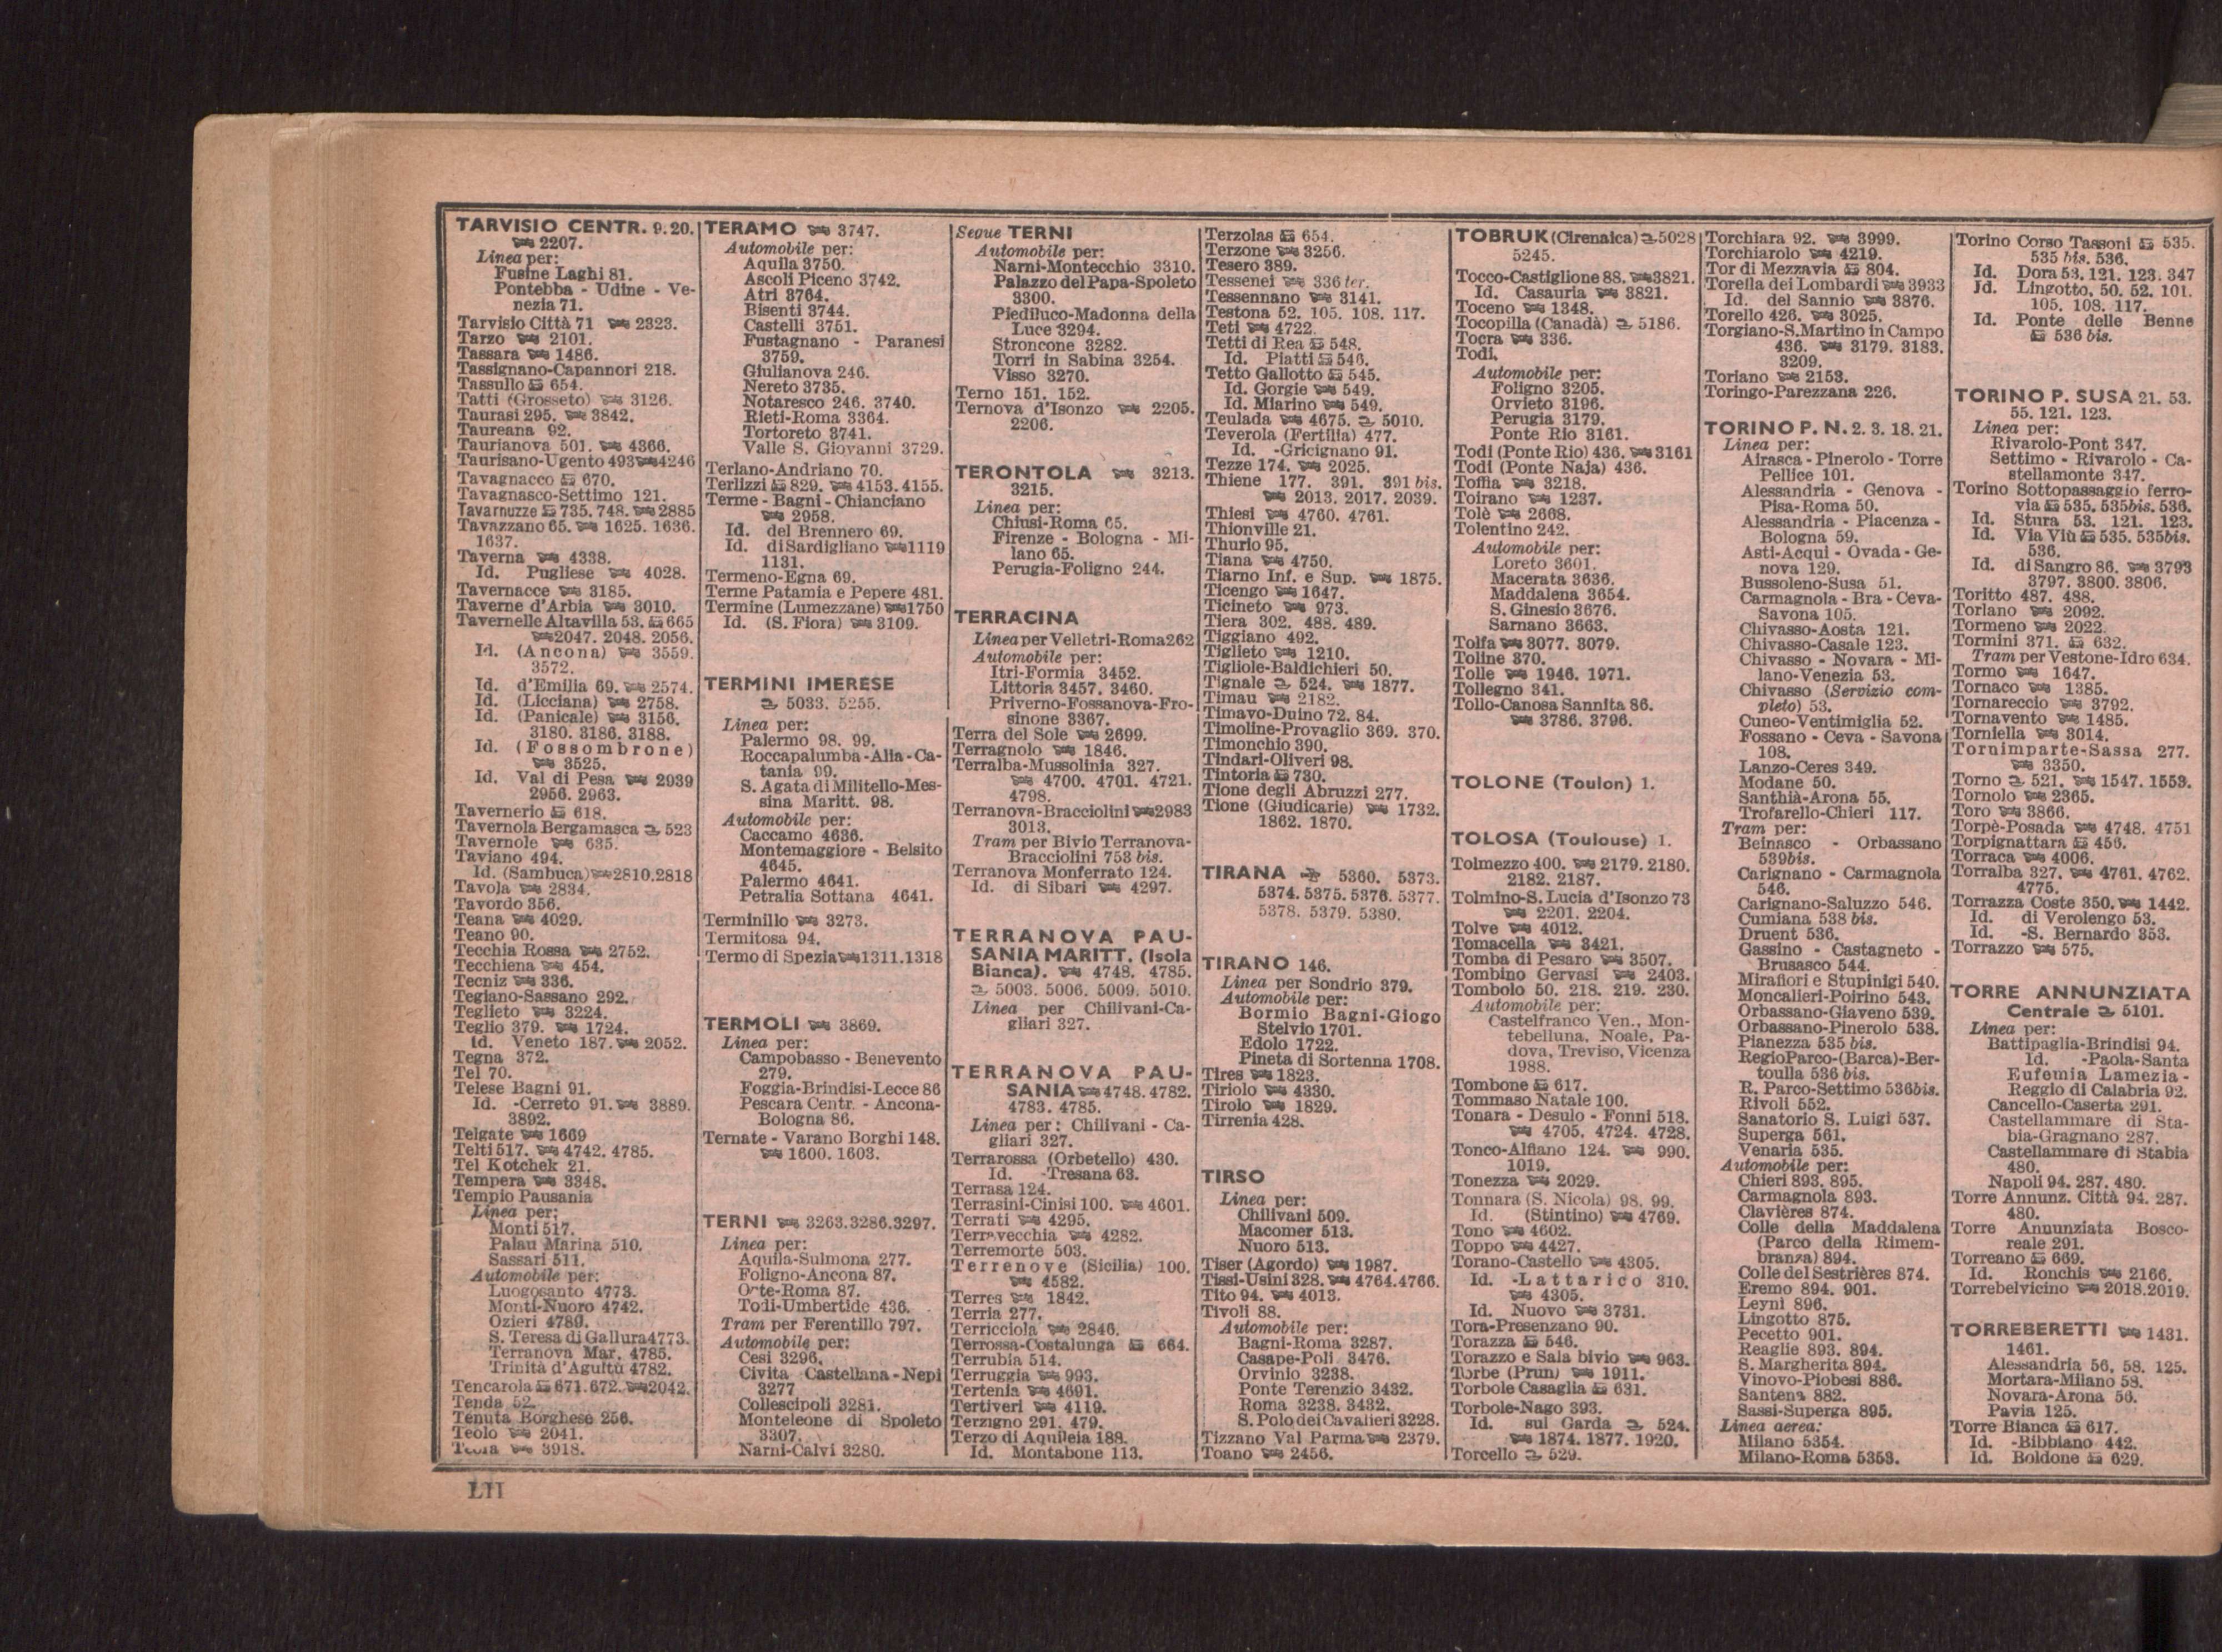 TARVISIO CENTR. 9.20.
2207.
Linea per:
Fusine Laghi 81.
Pontebba - Udine - Ve-
nezia 71.
Tarvisio Città 71 2323.
Tarzo 2101.
Tassara 1486.
Tassignano-Capannori 218.
Tassullo 654.
Tatti (Grosseto) 3126.
Taurasi 295. 3842.
Taureana 92.
Taurianova 501. 4366.
Taurisano-Ugento 493 4246
Tavagnacco 670.
Tavagnasco-Settimo 121.
Tavarnuzze 735. 748. 2885
Tavazzano 65. 1625. 1636.
1637.
Taverna 4338.
Id. Pugliese 4028.
Tavernacce 3185.
Taverne d'Arbia 3010.
Tavernelle Altavilla 53. 665
2047. 2048. 2056.
Id. (Ancona) 3559.
3572.
Id. d'Emilia 69. 2574.
Id. (Licciana) 2758.
Id. (Panicale) 3156.
3180. 3186. 3188.
Id. (Fossombrone)
3525.
Id. Val di Pesa 2939
2956. 2963.
Tavernerio 618.
Tavernola Bergamasca 523
Tavernole 635.
Taviano 494.
Id. (Sambuca) 2810.2818
Tavola 2834.
Tavordo 356.
Teana 4029.
Teano 90.
Tecchia Rossa 2752.
Tecchiena 454.
Tecniz 336.
Tegiano-Sassano 292.
Teglieto 3224.
Teglio 379. 1724.
Id. Veneto 187. 2052.
Tegna 372.
Tel 70.
Telese Bagni 91.
Id. -Cerreto 91. 3889.
3892.
Telgate 1669
Telti 517. 4742. 4785.
Tel Kotchek 21.
Tempera 3348.
Tempio Pausania
Linea per:
Monti 517.
Palau Marina 510.
Sassari 511.
Automobile per:
Luogosanto 4773.
Monti-Nuoro 4742.
Ozieri 4789.
S. Teresa di Gallura 4773.
Terranova Mar. 4785.
Trinità d'Agultu 4782.
Tencarola 671.672. 2042.
Tenda 52.
Tenuta Borghese 256.
Teolo 2041.
3918.
TERAMO 3747.
Automobile per:
Aquila 3750.
Ascoli Piceno 3742.
Atri 3764.
Bisenti 3744.
Castelli 3751.
Fustagnano - Paranesi
3759.
Giulianova 246.
Nereto 3735.
Notaresco 246. 3740.
Rieti-Roma 3364.
Tortoreto 3741.
Valle S. Giovanni 3729.
Terlano-Andriano 70.
Terlizzi 829. 4153. 4155.
Terme - Bagni - Chianciano
2958.
Id. del Brennero 69.
Id. di Sardigliano 1119
1131.
Termeno-Egna 69.
Terme Patamia e Pepere 481.
Termine (Lumezzane) 1750
Id. (S. Fiora) 3109.
TERMINI IMERESE
5033. 5255.
Linea per:
Palermo 98. 99.
Roccapalumba - Alia - Ca-
tania 99.
S. Agata di Militello-Mes-
sina Maritt. 98.
Automobile per:
Caccamo 4636.
Montemaggiore - Belsito
4645.
Palermo 4641.
Petralia Sottana 4641.
Terminillo 3273.
Termitosa 94.
Termo di Spezia 1311.1318
TERMOLI 3869.
Linea per:
Campobasso - Benevento
279.
Foggia-Brindisi-Lecce 86
Pescara Centr. - Ancona-
Bologna 86.
Ternate - Varano Borghi 148.
1600. 1603.
TERNI 3263.3286.3297.
Linea per:
Aquila-Sulmona 277.
Foligno-Ancona 87.
Orte-Roma 87.
Todi-Umbertide 436.
Tram per Ferentillo 797.
Automobile per:
Cesi 3296.
Civita Castellana - Nepi
3277
Collescipoli 3281.
Monteleone di Spoleto
3307.
Narni-Calvi 3280.
Segue TERNI
Automobile per:
Narni-Montecchio 3310.
Palazzo del Papa-Spoleto
3300.
Piediluco-Madonna della
Luce 3294.
Stroncone 3282.
Torri in Sabina 3254.
Visso 3270.
Terno 151. 152.
Ternova d'Isonzo 2205.
2206.
TERONTOLA 3213.
3215.
Linea per:
Chiusi-Roma 65.
Firenze - Bologna - Mi-
lano 65.
Perugia-Foligno 244.
TERRACINA
Linea per Velletri-Roma 262
Automobile per:
Itri-Formia 3452.
Littoria 3457. 3460.
Priverno-Fossanova-Fro-
sinone 3367.
Terra del Sole 2699.
Terragnolo 1846.
Terralba-Mussolinia 327.
4700. 4701. 4721.
4798.
Terranova-Bracciolini 2983
3013.
Tram per Bivio Terranova-
Bracciolini 753 bis.
Terranova Monferrato 124.
Id. di Sibari 4297.
TERRANOVA PAU-
SANIA MARITT. (Isola
Bianca). 4748. 4785.
5003. 5006. 5009. 5010.
Linea per Chilivani-Ca-
gliari 327.
TERRANOVA PAU-
SANIA 4748. 4782.
4783. 4785.
Linea per: Chilivani - Ca-
gliari 327.
Terrarossa (Orbetello) 430.
Id. -Tresana 63.
Terrasa 124.
Terrasini-Cinisi 100. 4601.
Terrati 4295.
Terravecchia 4282.
Terremorte 503.
Terrenove (Sicilia) 100.
4582.
Terres 1842.
Terria 277.
Terricciola 2846.
Terrossa-Costalunga 664.
Terrubia 514.
Terruggia 993.
Tertenia 4691.
Tertiveri 4119.
Terzigno 291. 479.
Terzo di Aquileia 188.
Id. Montabone 113.
Terzolas 654.
Terzone 3256.
Tesero 389.
Tessenei 336 ter.
Tessennano 3141.
Testona 52. 105. 108. 117.
Teti 4722.
Tetti di Rea 548.
Id. Piatti 546.
Tetto Gallotto 545.
Id. Gorgie 549.
Id. Miarino 549.
Teulada 4675. 5010.
Teverola (Fertilia) 477.
Id. -Gricignano 91.
Tezze 174. 2025.
Thiene 177. 391. 391 bis.
2013. 2017. 2039.
Thiesi 4760. 4761.
Thionville 21.
Thurio 95.
Tiana 4750.
Tiarno Inf. e Sup. 1875.
Ticengo 1647.
Ticineto 973.
Tiera 302. 488. 489.
Tiggiano 492.
Tiglieto 1210.
Tigliole-Baldichieri 50.
Tignale 524. 1877.
Timau 2182.
Timavo-Duino 72. 84.
Timoline-Provaglio 369. 370.
Timonchio 390.
Tindari-Oliveri 98.
Tintoria 730.
Tione degli Abruzzi 277.
Tione (Giudicarie) 1732.
1862. 1870.
TIRANA 5360. 5373.
5374. 5375. 5376. 5377.
5378. 5379. 5380.
TIRANO 146.
Linea per Sondrio 379.
Automobile per:
Bormio Bagni-Giogo
Stelvio 1701.
Edolo 1722.
Pineta di Sortenna 1708.
Tires 1823.
Tiriolo 4330.
Tirolo 1829.
Tirrenia 428.
TIRSO
Linea per:
Chilivani 509.
Macomer 513.
Nuoro 513.
Tiser (Agordo) 1987.
Tissi-Usini 328. 4764.4766.
Tito 94. 4013.
Tivoli 88.
Automobile per:
Bagni-Roma 3287.
Casape-Poli 3476.
Orvinio 3238.
Ponte Terenzio 3432.
Roma 3238. 3432.
S. Polo dei Cavalieri 3228.
Tizzano Val Parma 2379.
Toano 2456.
TOBRUK (Cirenaica) 5028
5245.
Tocco-Castiglione 88. 3821.
Id. Casauria 3821.
Toceno 1348.
Tocopilla (Canadà) 5186.
Tocra 336.
Todi,
Automobile per:
Foligno 3205.
Orvieto 3196.
Perugia 3179.
Ponte Rio 3161.
Todi (Ponte Rio) 436. 3161
Todi (Ponte Naja) 436.
Toffia 3218.
Toirano 1237.
Tolè 2668.
Tolentino 242.
Automobile per:
Loreto 3601.
Macerata 3636.
Maddalena 3654.
S. Ginesio 3676.
Sarnano 3663.
Tolfa 3077. 3079.
Toline 370.
Tolle 1946. 1971.
Tollegno 341.
Tollo-Canosa Sannita 86.
3786. 3796.
TOLONE (Toulon) 1.
TOLOSA (Toulouse) 1.
Tolmezzo 400. 2179. 2180.
2182. 2187.
Tolmino-S. Lucia d'Isonzo 73
2201. 2204.
Tolve 4012.
Tomacella 3421.
Tomba di Pesaro 3507.
Tombino Gervasi 2403.
Tombolo 50. 218. 219. 230.
Automobile per:
Castelfranco Ven., Mon-
tebelluna, Noale, Pa-
dova, Treviso, Vicenza
1988.
Tombone 617.
Tommaso Natale 100.
Tonara - Desulo - Fonni 518.
4705. 4724. 4728.
Tonco-Alfiano 124. 990.
1019.
Tonezza 2029.
Tonnara (S. Nicola) 98. 99.
Id. (Stintino) 4769.
Tono 4602.
Toppo 4427.
Torano-Castello 4305.
Id. -Lattarico 310.
4305.
Id. Nuovo 3731.
Tora-Presenzano 90.
Torazza 546.
Torazzo e Sala bivio 963.
Torbe (Prun) 1911.
Torbole Casaglia 631.
Torbole-Nago 393.
Id. sul Garda 524.
1874. 1877. 1920.
Torcello 529.
Torchiara 92. 3999.
Torchiarolo 4219.
Tor di Mezzavia 804.
Torella dei Lombardi 3933
Id. del Sannio 3876.
Torello 426. 3025.
Torgiano-S.Martino in Campo
436. 3179. 3183.
3209.
Toriano 2153.
Toringo-Parezzana 226.
TORINO P. N. 2. 3. 18. 21.
Linea per:
Airasca - Pinerolo - Torre
Pellice 101.
Alessandria - Genova -
Pisa-Roma 50.
Alessandria - Piacenza -
Bologna 59.
Asti-Acqui - Ovada - Ge-
nova 129.
Bussoleno-Susa 51.
Carmagnola - Bra - Ceva-
Savona 105.
Chivasso-Aosta 121.
Chivasso-Casale 123.
Chivasso - Novara - Mi-
lano-Venezia 53.
Chivasso (Servizio com-
pleto) 53.
Cuneo-Ventimiglia 52.
Fossano - Ceva - Savona
108.
Lanzo-Ceres 349.
Modane 50.
Santhià-Arona 55.
Trofarello-Chieri 117.
Tram per:
Beinasco - Orbassano
539bis.
Carignano - Carmagnola
546.
Carignano-Saluzzo 546.
Cumiana 538 bis.
Druent 536.
Gassino - Castagneto -
Brusasco 544.
Mirafiori e Stupinigi 540.
Moncalieri-Poirino 543.
Orbassano-Giaveno 539.
Orbassano-Pinerolo 538.
Pianezza 535 bis.
Regio Parco-(Barca)-Ber-
toulla 536 bis.
R. Parco-Settimo 536bis.
Rivoli 552.
Sanatorio S. Luigi 537.
Superga 561.
Venaria 535.
Automobile per:
Chieri 893. 895.
Carmagnola 893.
Clavières 874.
Colle della Maddalena
(Parco della Rimem-
branza) 894.
Colle del Sestrières 874.
Eremo 894. 901.
Leynì 896.
Lingotto 875.
Pecetto 901.
Reaglie 893. 894.
S. Margherita 894.
Vinovo-Piobesi 886.
Santena 882.
Sassi-Superga 895.
Linea aerea:
Milano 5354.
Milano-Roma 5353.
Torino Corso Tassoni 535.
535 bis. 536.
Id. Dora 53. 121. 123. 347
Id. Lingotto, 50. 52. 101.
105. 108. 117.
Id. Ponte delle Benne
536 bis.
TORINO P. SUSA 21. 53.
55. 121. 123.
Linea per:
Rivarolo-Pont 347.
Settimo - Rivarolo - Ca-
stellamonte 347.
Torino Sottopassaggio ferro-
via 535. 535bis. 536.
Id. Stura 53. 121. 123.
Id. Via Viù 535. 535bis.
536.
Id. di Sangro 86. 3793
3797. 3800. 3806.
Toritto 487. 488.
Torlano 2092.
Tormeno 2022.
Tormini 371. 632.
Tram per Vestone-Idro 634.
Tormo 1647.
Tornaco 1385.
Tornareccio 3792.
Tornavento 1485.
Torniella 3014.
Tornimparte-Sassa 277.
3350.
Torno 521. 1547. 1553.
Tornolo 2365.
Toro 3866.
Torpè-Posada 4748. 4751
Torpignattara 456.
Torraca 4006.
Torralba 327. 4761. 4762.
4775.
Torrazza Coste 350. 1442.
Id. di Verolengo 53.
Id. -S. Bernardo 353.
Torrazzo 575.
TORRE ANNUNZIATA
Centrale 5101.
Linea per:
Battipaglia-Brindisi 94.
Id. -Paola-Santa
Eufemia Lamezia -
Reggio di Calabria 92.
Cancello-Caserta 291.
Castellammare di Sta-
bia-Gragnano 287.
Castellammare di Stabia
480.
Napoli 94. 287. 480.
Torre Annunz. Città 94. 287.
480.
Torre Annunziata Bosco-
reale 291.
Torreano 669.
Id. Ronchis 2166.
Torrebelvicino 2018.2019.
TORREBERETTI 1431.
1461.
Alessandria 56. 58. 125.
Mortara-Milano 58.
Novara-Arona 56.
Pavia 125.
Torre Bianca 617.
Id. -Bibbiano 442.
Id. Boldone 629.
LII